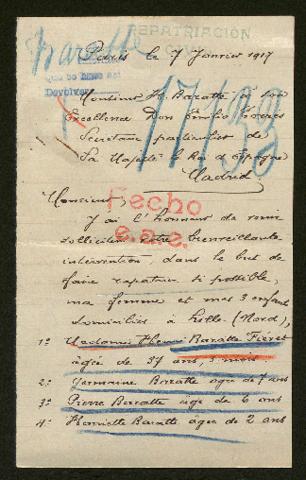 REPATRIACIÓN
Baratte
Paris le 7 Janvier 1917
que se ruego
Devolver
17198
Monsieur H. Baratte à Son
Excellence Don Emilio Torres
Secretaire particulier de
Sa Majesté le Roi d'Espagne
Madrid
Monsieur,
Fecho
e.a.e.
J'ai l'honneur de venir
solliciter votre bienveillante
intervention, dans le but de
faire rapatrier si possible,
ma femme et mes 3 enfants
domiciliés à Lille (Nord),
1º Madame Henri Baratte Fiévet
âgée de 37 ans, 3 mois
2º Germaine Baratte agée de 7 ans
3º Pierre Baratte âgé de 6 ans
4º Henriette Baratte agée de 2 ans